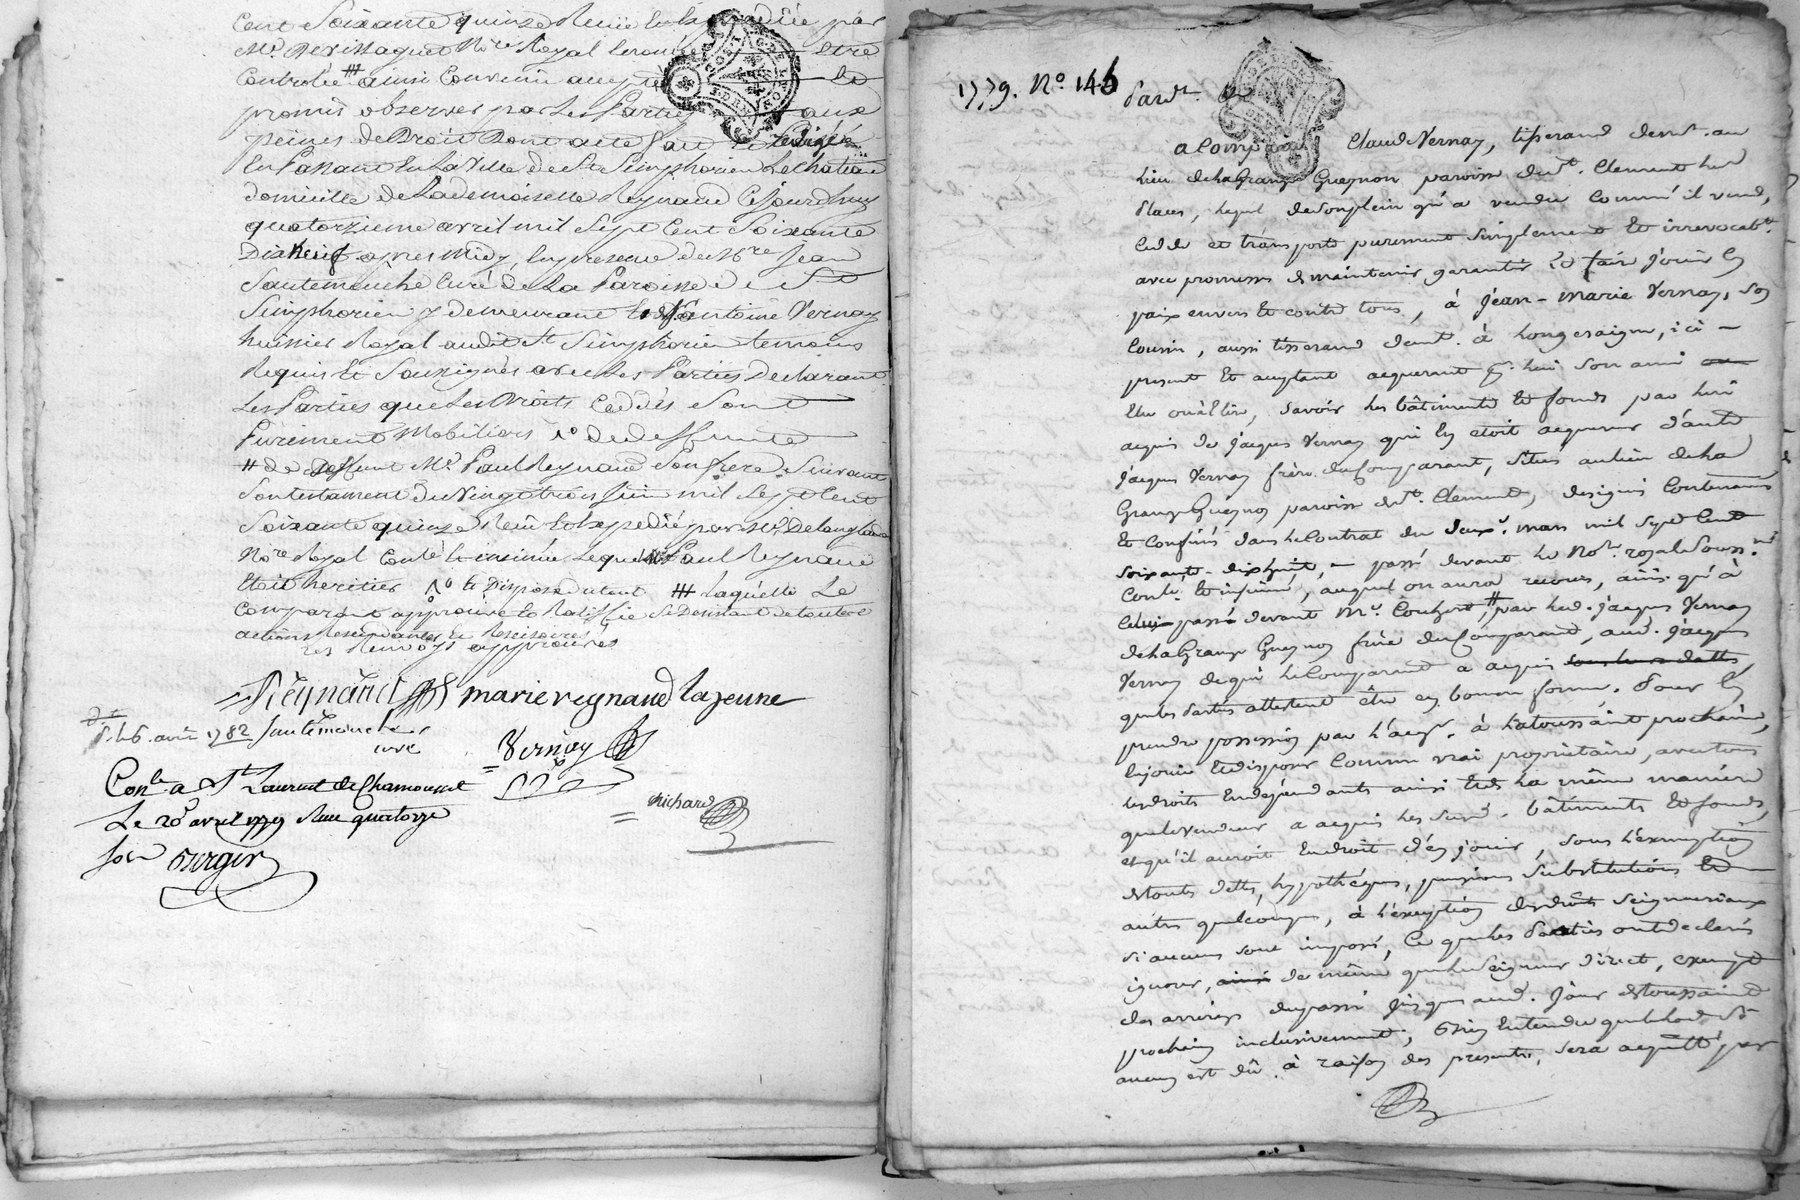 Cent Soixante quinze Reçüe Et Expediée par
Me. Notre Royal
Controlée # ainsi Convenu accepté
promis observer par Les Parties aux
peines de Droit Dont acte fait Et Rédigé
En Passant En La Ville de St. Simphorien Le Château
domicille de La demoiselle Reynaud Cejourdhuy
quatorzieme avril mil Sept Cent Soixante
Dixneuf après Midy, En presence de Mre Jean
Sautemouche Curé de La Paroisse de St
Simphorien y demeurant Et de Sr antoine Vernay
huissier Royal audit St Simphorien temoins
Requis Et Soussignés avec Les Parties Declarant
Les Parties que Les Droits Ceddés Sont
Purement Mobiliers
# de deffunt Me. Paul Reynaud Son frere Suivant
Son testament du vingt trois Juin mil Sept Cent
Soixante quinze Reçu Et Expedié par Me. Delanglade
Nore Royal Contlé Et insinué Lequel Me Paul Reynaud
Etoit heritier ### Laquelle Le
Comparant approuve Et Ratiffie Se Desistant de toutes
actions Rescindantes Et Rescisoires
Les Renvoys approuvés
Reynaud marie reynaud la jeune
6. avril 1782 Sautemouche
curé
Vernay
Conlé a St Laurent de Chamousset
Le 20 avril 1779 Reçu quatorze
Richard
sols
1779. No. 146
Pardt.
a Comparu Claude Vernay, tisserand demt. au
Lieu de La Grange Gueynon paroisse de St. Clement Les
Places, Lequel de Son plein gré a vendu Comme il vend,
Cedde et transporte purement Simplement Et irrevocabt.
avec promesses de maintenir garantir Et faire Jouir En
paix envers Et contre tous, à Jean-Marie Vernay, Son
Cousin, aussi tisserand demt. à Longessaigne, ici
present Et acceptant acquereur pr. Lui Son ami
Elu ou à Elire, Savoir Les bâtiments Et fonds par Lui
acquis de Jacques Vernay qui Les avoit acquis d'autre
Jacques Vernay frère du Comparant, Situés au Lieu de La
Grange Gueynon paroisse de St. Clement, designés Contenances
Et Confinés dans Le Contrat du deux. mars mil Sept Cent
Soixante-dixhuit, passé devant Le Nore. royal Souss.né
Contlé. Et insinué, auquel on aura recours, ainsi qu'à
Celui passé devant Me. # par Led. Jacques Vernay
de La Grange Gueynon frère du Comparant, aud. Jacques
Vernay de qui Le Comparant a acquis Sous Leurs dattes,
que Les Parties attestent être En bonne forme. Pour En
prendre possession par L'acqr. à La toussaint prochaine,
En jouir Et disposer Comme vrai propriétaire, avec tous
Les droits En dépendants ainsi Et de La même manière
que Le vendeur a acquis Les Susd. bâtiments Et fonds,
et qu'il auroit En droit d'en jouir, Sous L'exemption
de toutes dettes, hypothèques, pensions Substitutions Et
autres quelconques, à L'exception des droits Seigneuriaux
Si aucuns Sont imposés, Ce que Les Parties ont declarés
ignorer, ainsi de même que Le Seigneur direct, exempt
des arrérages du passé jusques aud. Jour de toussaint
prochain inclusivement, Bien Entendu que Le Lod Si
aucun est dû à raison des presentes, Sera acquitté par